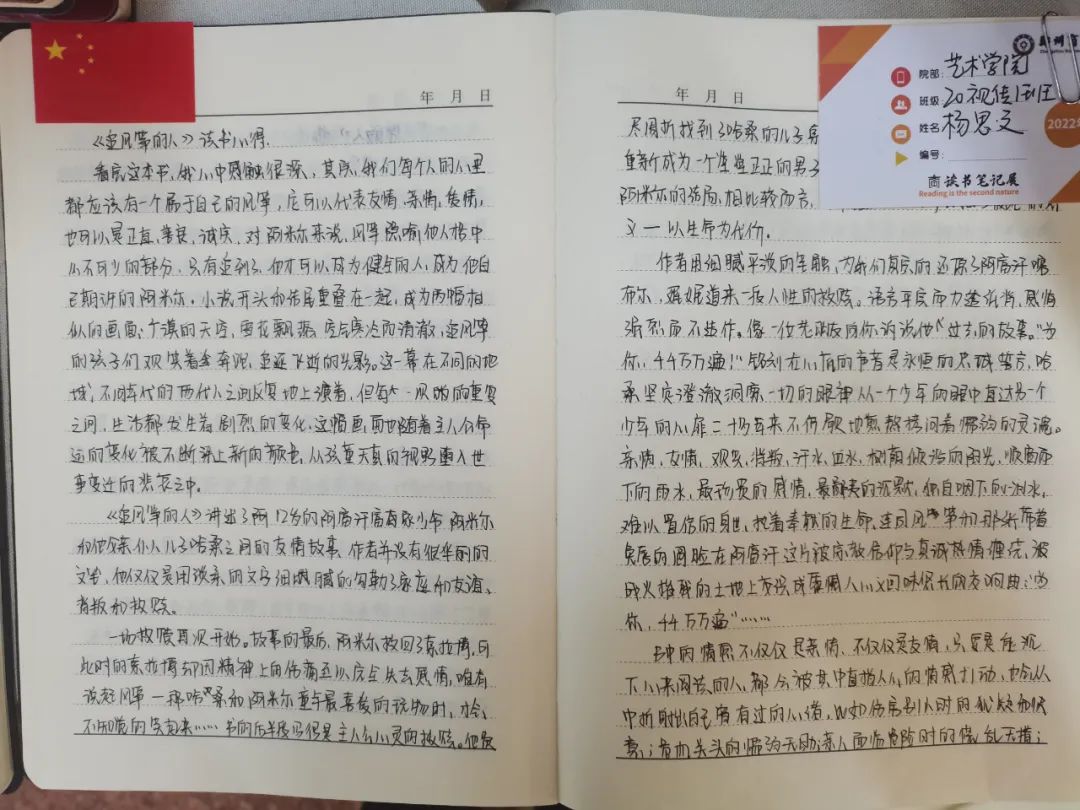 年 月 日
《追风筝的人》读书心得.
看完这本书,我心中感触很深,其实,我们每个人的心里
都应该有一个属于自己的风筝,它可以代表友情、亲情、爱情,
也可以是正直、善良、诚实.对阿米尔来说,风筝隐喻他人格中
必不可少的部分,只有追到了,他才可以成为健全的人,成为他自
己期许的阿米尔.小说开头和结尾重叠在一起,成为两幅相
似的画面:个漠的天空,雪花飘振
的孩子们欢笑着奔跑,追逐飞逝的光影.这一幕在不同的地
域,不同年代的两代人之间反复地上演着,但每一次的重复
之间,生活都发生着剧烈的变化.这幅画面也随着主人公命
运的变化被不断涂上新的颜色,从孩童天真的视野重入世
事变迁的悲哀之中.
《追风筝的人》讲出了12岁的阿富汗富家少爷阿米尔
和他家仆人儿子哈桑之间的友情故事.作者并没有很华丽的
文字,他仅仅是用淡柔的文字细腻的勾勒了家庭和友谊、
背叛和救赎.
一场救赎再次开始.故事的最后,阿米尔救回了索拉博,可
此时的索拉博却因精神上的伤痛足以完全失去感情,唯有
说起风筝一那哈桑和阿米尔童年最喜爱的玩物时,才会
不知觉的笑起来……书的后半段乃得是主人公心灵的救赎.他
年 月 日
尽周折找到了哈桑的儿子
重新成为一个堂堂正正的男子
阿米尔的结局,相比较而言,
义一以生命为代价.
作者用细腻平淡的笔触,为我们真实的还原了阿富汗喀
布尔,娓娓道来一段人性的救赎.语言平实而力透纸背,感情
浓烈而不造作.像一位老朋友向你诉说他的故事."为
你,千千万万遍!"铭刻在心有的声音是永恒的忠诚誓言,哈
桑坚实澄澈洞察一切的眼神从一个少年的眼中直达另一个
少年的心扉二十多年来不停歇地煎熬拷问着懦弱的灵魂.
亲情,友情,欢笑,背叛,汗水,血水,树荫倾洒的阳光,顺窗而
下的雨水,最珍贵的感情,最静美的沉默,独自咽下的泪水,
难以置信的身世,挽着奉献的生命,连同风筝和那娇带着
兔唇的圆脸在阿富汗这片被宗教信仰与真诚热情缠绕,被
战火摧残的土地上交织成震慑人心又回味悠长的交响曲:"为
你,千千万万遍"……
书中的情愿不仅仅是亲情、不仅仅是友情,只要是能沉
下心来阅读的人,都会被其中直指人心的情感打动,也会从
中折射出自己曾有过的心绪,比如伤害别人时的
意;危机关头的懦弱无助;亲人面临危险时的慌乱无措;
院部:艺术学院
班级 20视传1班
姓名 杨思文
编号:
2022
读书笔记展
Reading is the second nature